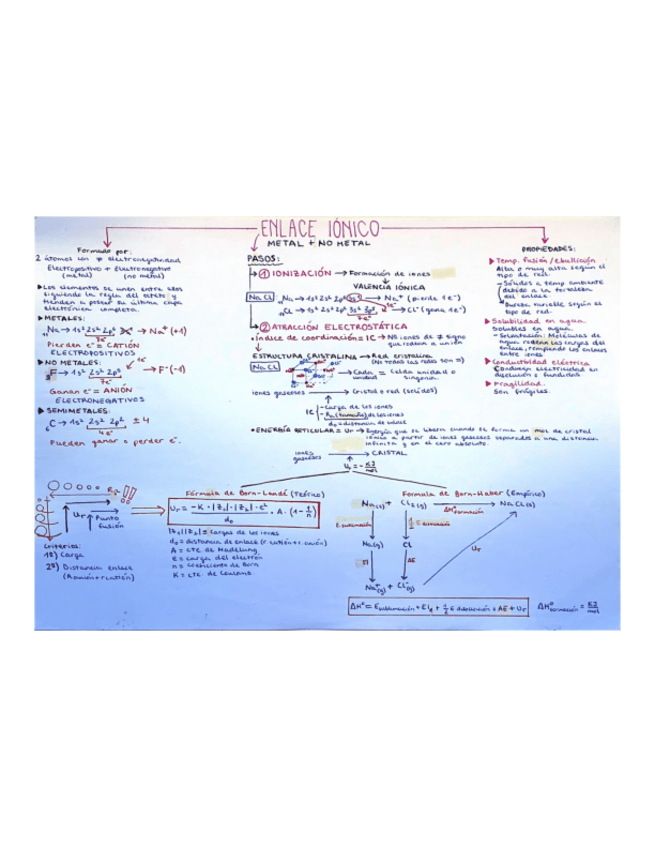 ENLACE IÓNICO
METAL + NO METAL
Formado por:
2 átomos con ≠ electronegatividad
Electropositivo + Electronegativo
(metal) (no metal)
▶Los elementos se unen entre ellos
siguiendo la regla del octeto y
tienden a poseer su última capa
electrónica completa.
▶METALES:
₁₁Na → 1s² 2s² 2p⁶ 3s¹ → Na⁺ (+1)
Pierden e⁻ = CATIÓN
ELECTROPOSITIVOS
▶NO METALES:
1e⁻
F → 1s² 2s² 2p⁵ → F⁻ (-1)
7e⁻
Ganan e⁻ = ANIÓN
ELECTRONEGATIVOS
▶SEMIMETALES:
₆C → 1s² 2s² 2p² ± 4
4e⁻
Pueden ganar o perder e⁻.
PASOS:
① IONIZACIÓN → Formación de iones
VALENCIA IÓNICA
NaCl
Na → 1s² 2s² 2p⁶ 3s¹ → Na⁺ (pierde 1e⁻)
Cl → 1s² 2s² 2p⁶ 3s² 3p⁵ → Cl⁻ (gana 1e⁻)
7e⁻
② ATRACCIÓN ELECTROSTÁTICA
•Índice de coordinación = IC → Nº iones de ≠ signo
que rodean a un ión
ESTRUCTURA CRISTALINA → Red cristalina
(No todas las redes son =)
NaCl
→ Cada = celda unidad o
unidad singonía.
iones gaseosos → cristal o red (sólidos)
IC
-Carga de los iones
-R (tamaño) de los iones
d₀ = distancia de enlace
•ENERGÍA RETICULAR = Ur → Energía que se libera cuando se forma un mol de cristal
iónico a partir de iones gaseosos separados a una distancia
infinita y en el cero absoluto.
iones gaseosos → CRISTAL
Ur = - KJ/mol
PROPIEDADES:
▶Temp. fusión/ebullición
Alta o muy alta según el
tipo de red.
-Sólidos a temp ambiente
debido a la fortaleza
del enlace
-Dureza variable según el
tipo de red.
▶Solubilidad en agua.
Solubles en agua.
-Solvatación: Moléculas de
agua rodean las cargas del
enlace, rompiendo los enlaces
entre iones
▶Conductividad eléctrica
Conducen electricidad en
disolución o fundidos
▶Fragilidad.
Son frágiles.
↑ Ur ↑ Punto
fusión
Criterios:
1º) Carga
2º) Distancia enlace
(Ranión + rcatión)
Fórmula de Born-Landé (Teórico)
Ur = -K · |Z₁| · |Z₂| · e² / d₀ · A · (1 - 1/n)
|Z₁||Z₂| = Cargas de los iones
d₀ = distancia de enlace (r. catión + r. anión)
A = cte de Madelung
e = carga del electrón
n = coeficiente de Born
K = cte. de Coulomb
Formula de Born-Haber (Empírico)
Na(s) + Cl₂(g) → NaCl(s)
ΔH° formación
E sublimación
½ E disociación
Na(g) Cl
EI ΔE
Ur
Na⁺(g) + Cl⁻(g)
ΔH° = E sublimación + EIe + ½ E disociación + AE + Ur
ΔH° formación = KJ/mol